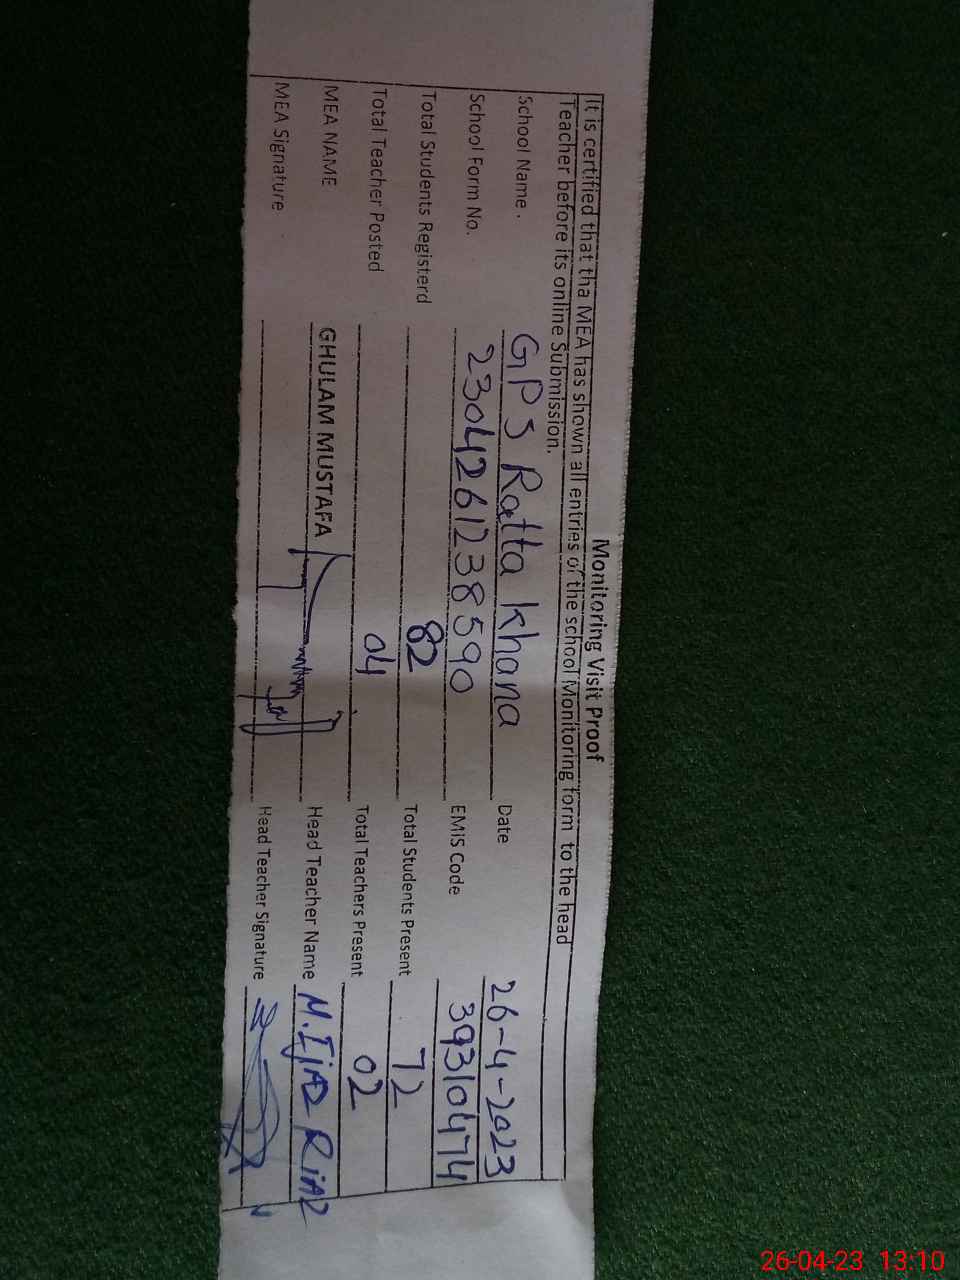 Monitoring Visit Proof
It is certified that tha MEA has shown all entries of the school Monitoring form to the head
Teacher before its online Submission.
School Name. GPS Ratta Khana Date 26-4-2023
School Form No. 2304261238590 EMIS Code 39310474
Total Students Registerd 82 Total Students Present 72
Total Teacher Posted 04 Total Teachers Present 02
MEA NAME GHULAM MUSTAFA Head Teacher Name M. IJAZ RIAZ
MEA Signature Head Teacher Signature
26-04-23 13:10